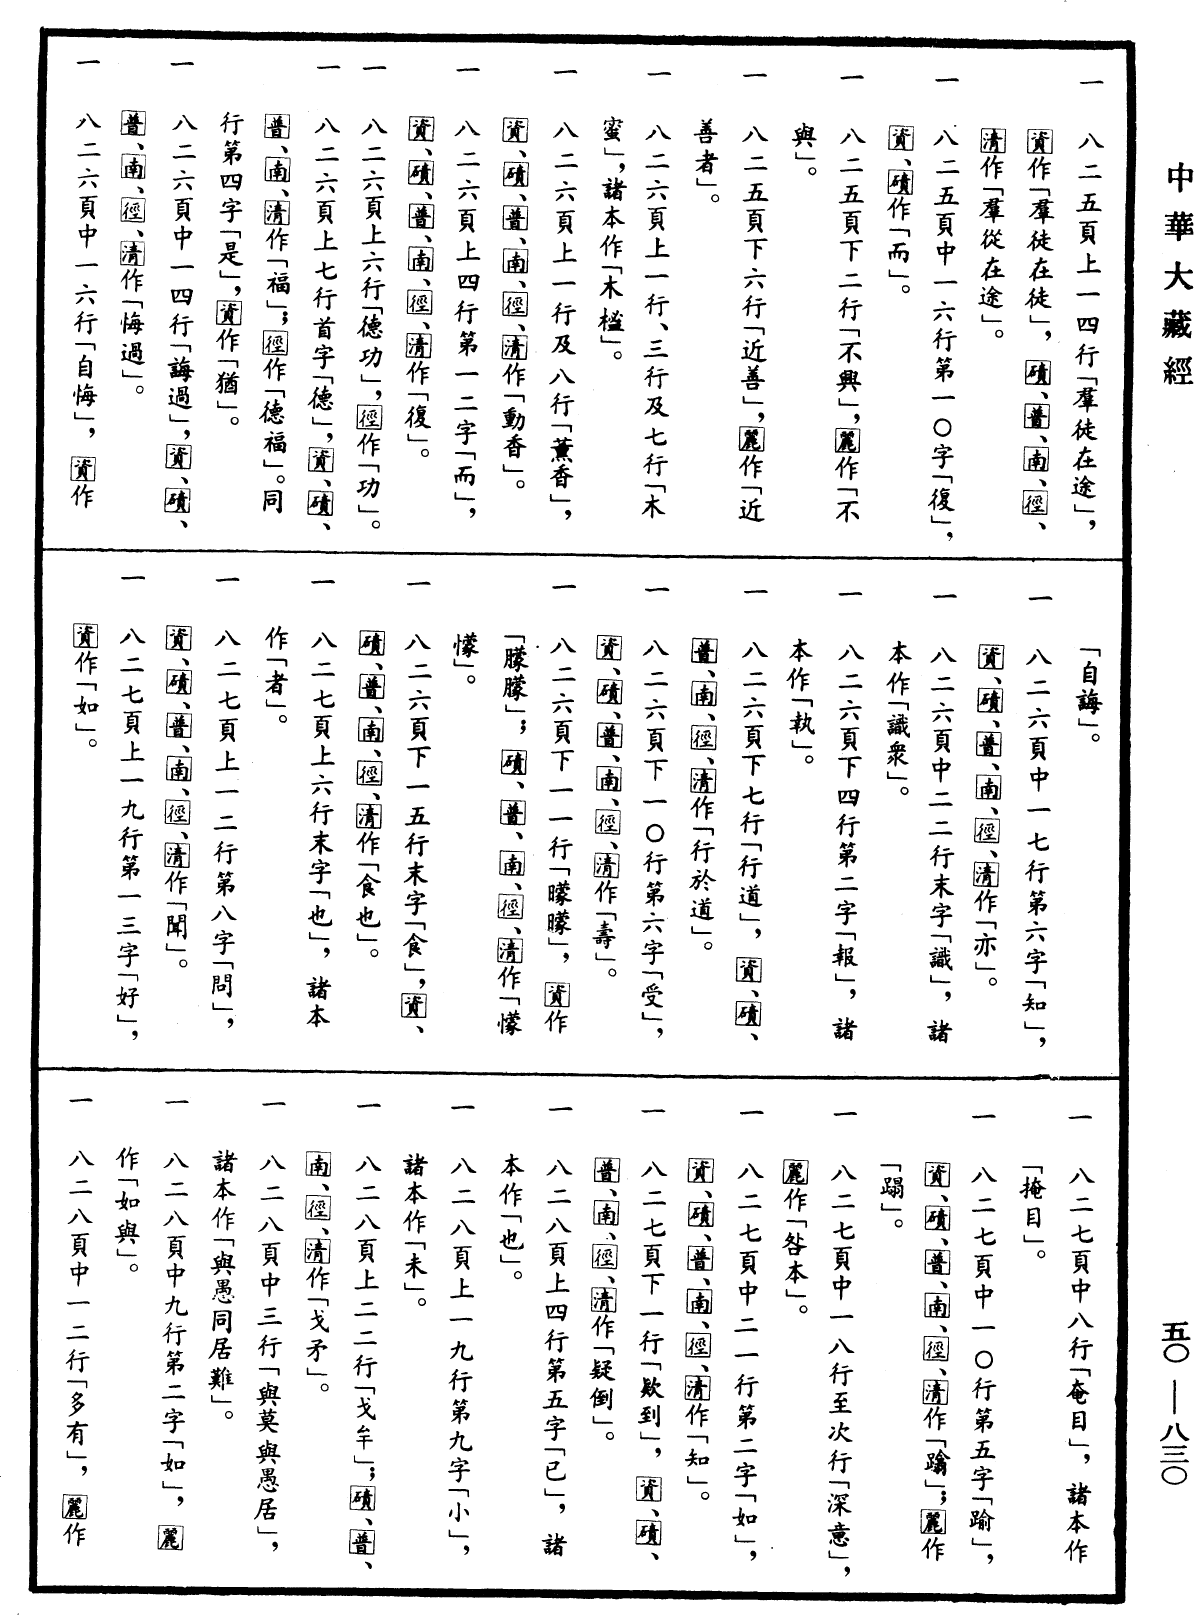 中華大藏經
一 八二五頁上一四行「羣徒在途」，
資作「羣徒在徒」，磧、普、南、徑、
清作「羣從在途」。
一 八二五頁中一六行第一〇字「復」，
資、磧作「而」。
一 八二五頁下二行「不興」，麗作「不
與」。
一 八二五頁下六行「近善」，麗作「近
善者」。
一 八二六頁上一行、三行及七行「木
蜜」，諸本作「木櫁」。
一 八二六頁上一行及八行「薰香」，
資、磧、普、南、徑、清作「動香」。
一 八二六頁上四行第一二字「而」，
資、磧、普、南、徑、清作「復」。
一 八二六頁上六行「德功」，徑作「功」。
一 八二六頁上七行首字「德」，資、磧、
普、南、清作「福」；徑作「德福」。同
行第四字「是」，資作「猶」。
一 八二六頁中一四行「誨過」，資、磧、
普、南、徑、清作「悔過」。
一 八二六頁中一六行「自悔」，資作
「自誨」。
一 八二六頁中一七行第六字「知」，
資、磧、普、南、徑、清作「亦」。
一 八二六頁中二二行末字「識」，諸
本作「識衆」。
一 八二六頁下四行第二字「報」，諸
本作「執」。
一 八二六頁下七行「行道」，資、磧、
普、南、徑、清作「行於道」。
一 八二六頁下一〇行第六字「受」，
資、磧、普、南、徑、清作「壽」。
一 八二六頁下一一行「曚曚」，資作
「朦朦」；磧、普、南、徑、清作「懞
懞」。
一 八二六頁下一五行末字「食」，資、
磧、普、南、徑、清作「食也」。
一 八二七頁上六行末字「也」，諸本
作「者」。
一 八二七頁上一二行第八字「問」，
資、磧、普、南、徑、清作「聞」。
一 八二七頁上一九行第一三字「好」，
資作「如」。
一 八二七頁中八行「奄目」，諸本作
「掩目」。
一 八二七頁中一〇行第五字「踰」，
資、磧、普、南、徑、清作「蹹」；麗作
「蹋」。
一 八二七頁中一八行至次行「深意」，
麗作「咎本」。
一 八二七頁中二一行第二字「如」，
資、磧、普、南、徑、清作「知」。
一 八二七頁下一行「欵到」，資、磧、
普、南、徑、清作「疑倒」。
一 八二八頁上四行第五字「已」，諸
本作「也」。
一 八二八頁上一九行第九字「小」，
諸本作「未」。
一 八二八頁上二二行「戈牟」；磧、普、
南、徑、清作「戈矛」。
一 八二八頁中三行「與莫與愚居」，
諸本作「與愚同居難」。
一 八二八頁中九行第二字「如」，麗
作「如與」。
一 八二八頁中一二行「多有」，麗作
五〇—八三〇